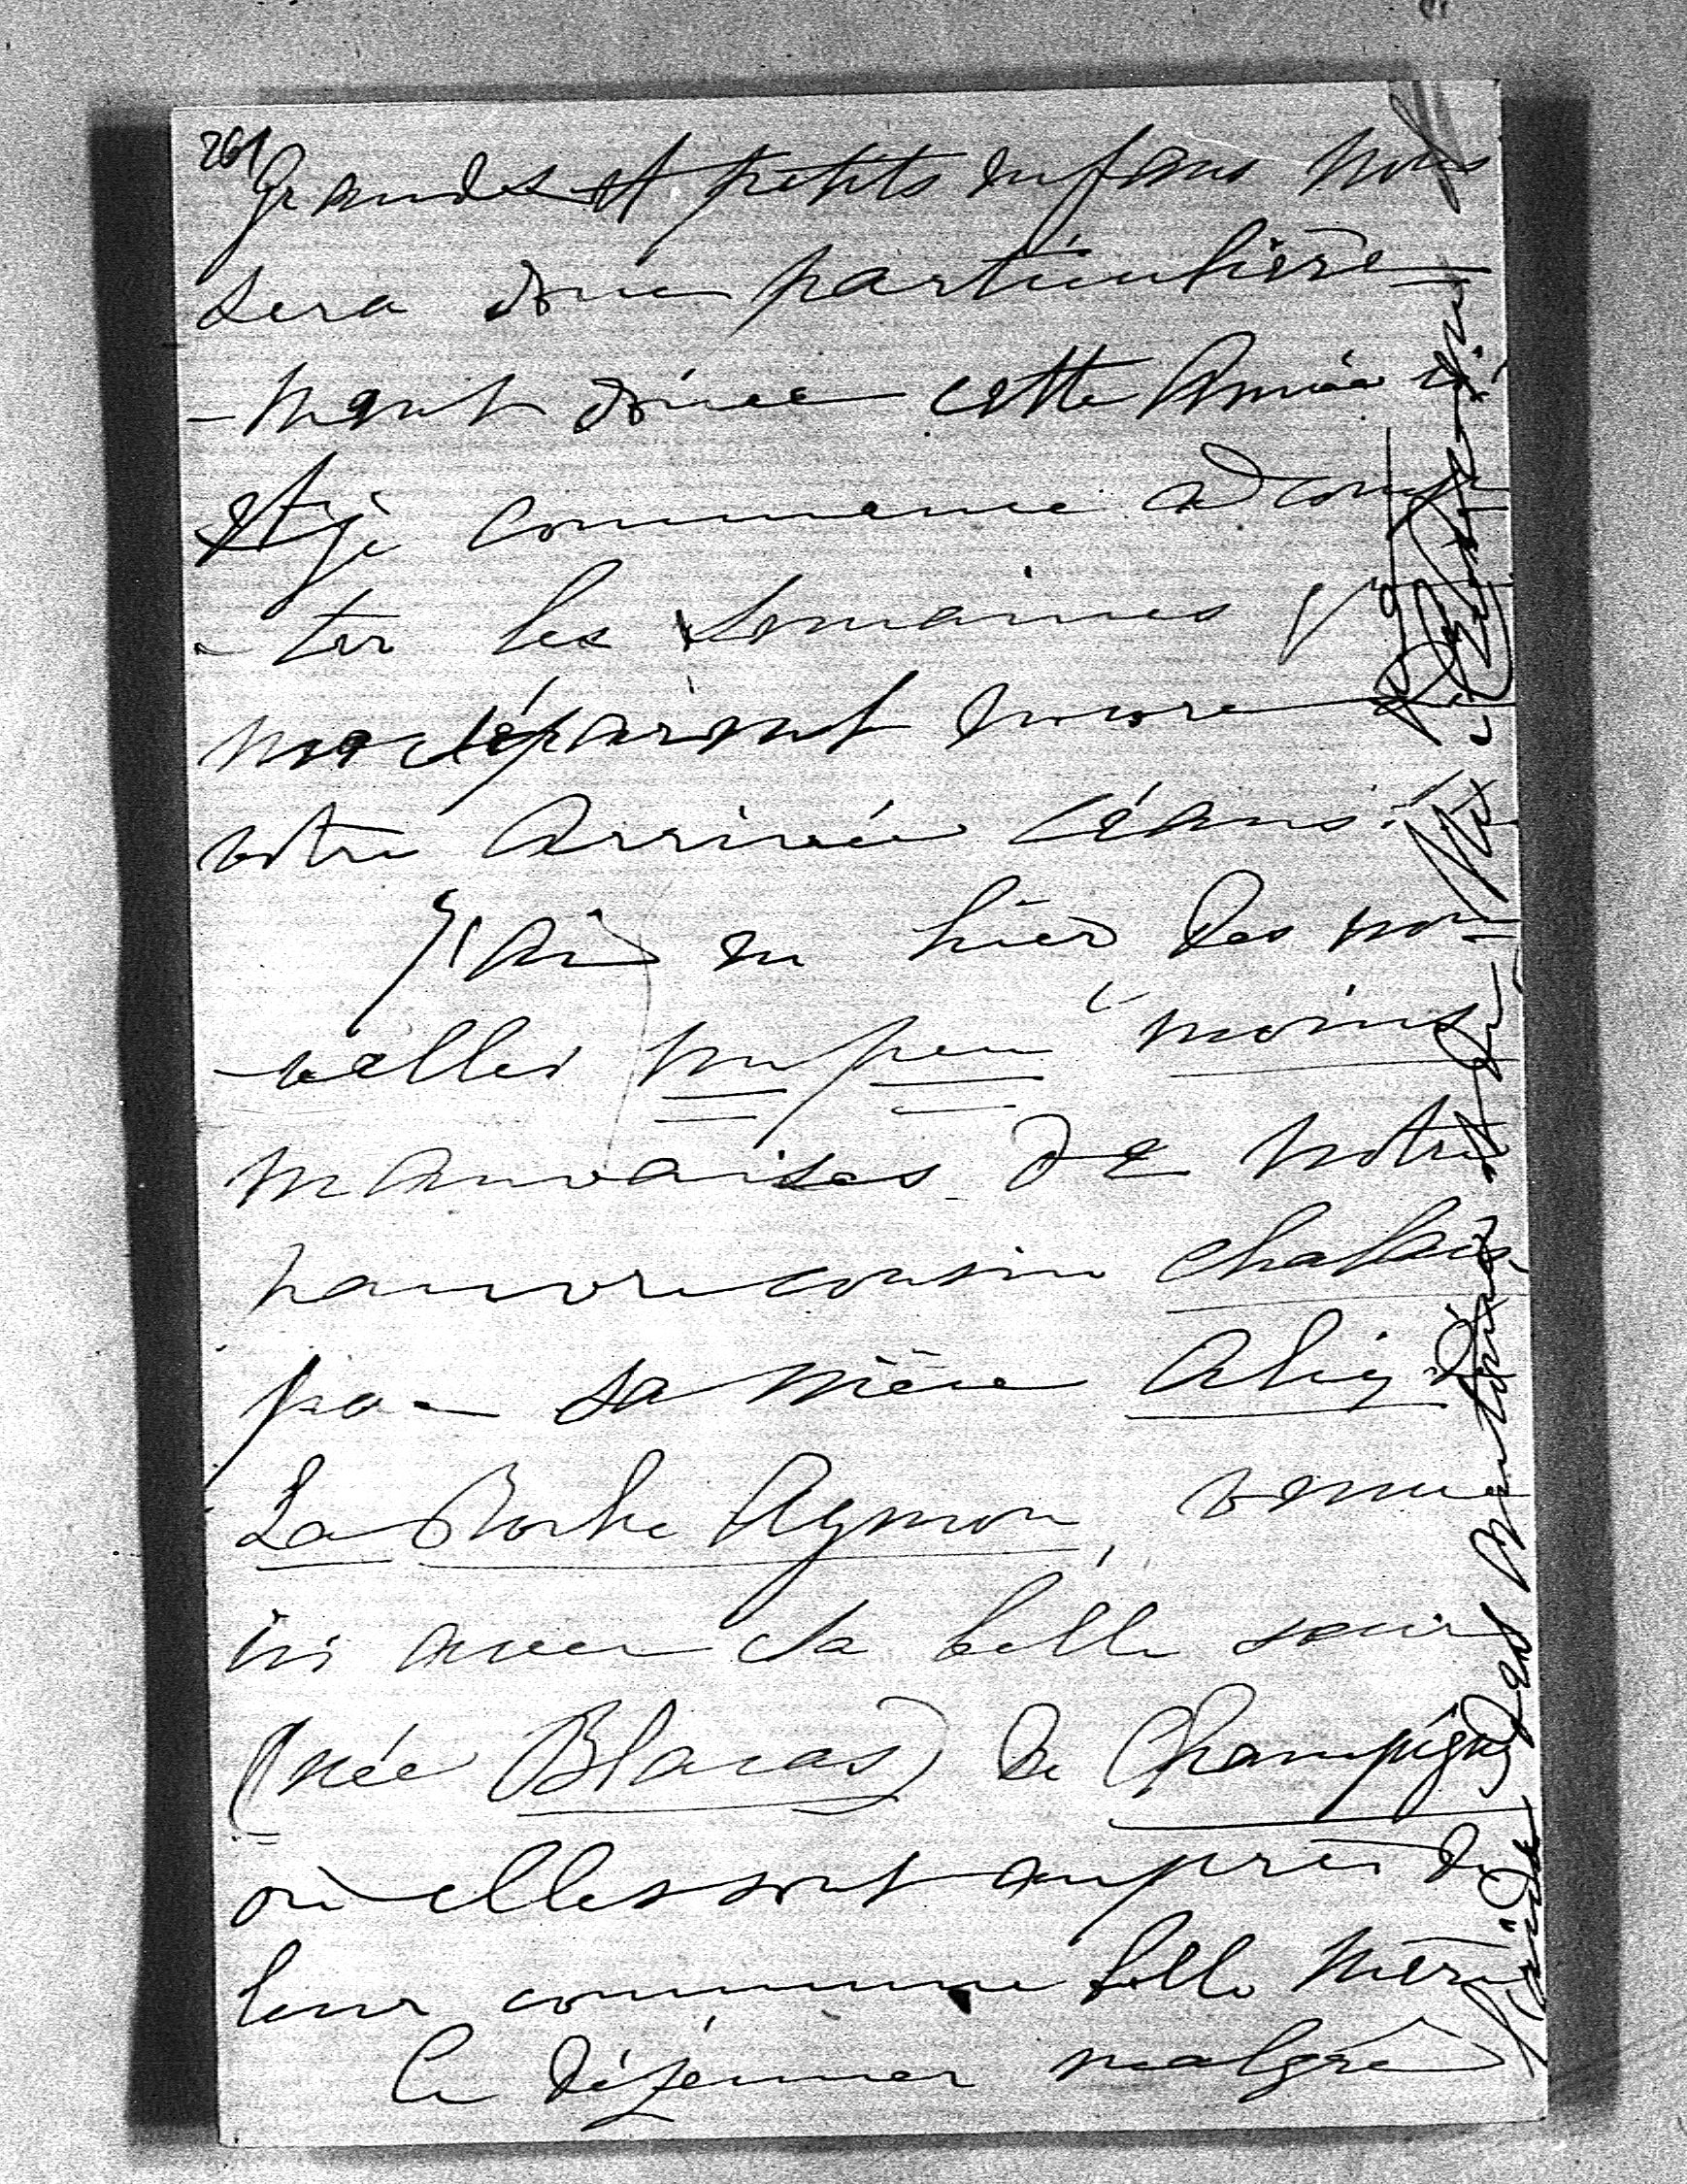 261
Grands et petits enfans nous
sera donc particulière
-ment douce cette année
et je commence à comp
-ter les semaines
me séparent encore
votre arrivée céans.
J'ai eu hier des nou
-velles un peu moins
mauvaises de notre
pauvre cousin Chalais
par sa mère
La Roche Aymon, venue
ici avec sa belle soeur
(née Blacas) de Champigny
où elles sont auprès de
leur commune belle mère
Le déjeuner malgré